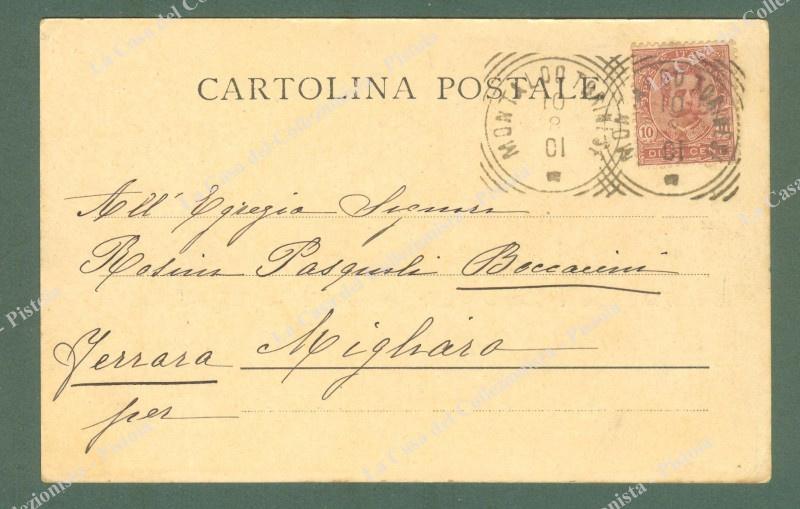 CARTOLINA POSTALE
10
DIECI CENT
10
8
01
10
01
All' Egregio Signore
Rosina Pasquoli Boccaccini
Ferrara Migliaro
per
La Casa del Collezionista - Pistoia